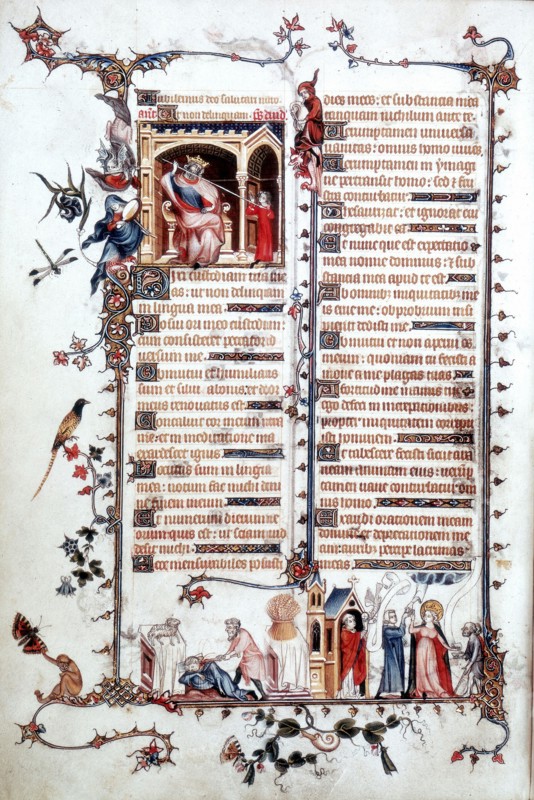 Iubilemus deo salutari nostro.
Ut non delinquam. ps. david
Dixi custodiam vias me
as: ut non delinquam
in lingua mea.
Posui ori meo custodiam:
cum consisteret peccator ad
versum me.
Obmutui et humiliatus
sum et silui a bonis: et dolor
meus renovatus est.
Concaluit cor meum intra
me: et in meditatione mea
exardescet ignis.
Locutus sum in lingua
mea: notum fac michi domine
finem meum.
Et numerum dierum me
orum quis est: ut sciam quid
desit michi.
Ecce mensurabiles posuisti
dies meos: et substantia mea
tamquam nichilum ante te.
Verumptamen universa
vanitas: omnis homo vivens.
Verumptamen in ymagi
ne pertransit homo: sed et frus
tra conturbatur.
Thesaurizat: et ignorat cui
congregabit ea.
Et nunc que est expectatio
mea nonne dominus: et sub
stantia mea apud te est.
Ab omnibus iniquitatibus me
is erue me: obprobrium insi
pienti dedisti me.
Obmutui et non aperui os
meum: quoniam tu fecisti a
move a me plagas tuas.
A fortitudine manus tue
ego defeci in increpationibus:
propter iniquitatem corripu
isti hominem.
Et tabescere fecisti sicut ara
neam animam eius: verum
tamen vane conturbatur om
nis homo.
Exaudi orationem meam
domine et deprecationem me
am: auribus percipe lacrimas
meas.